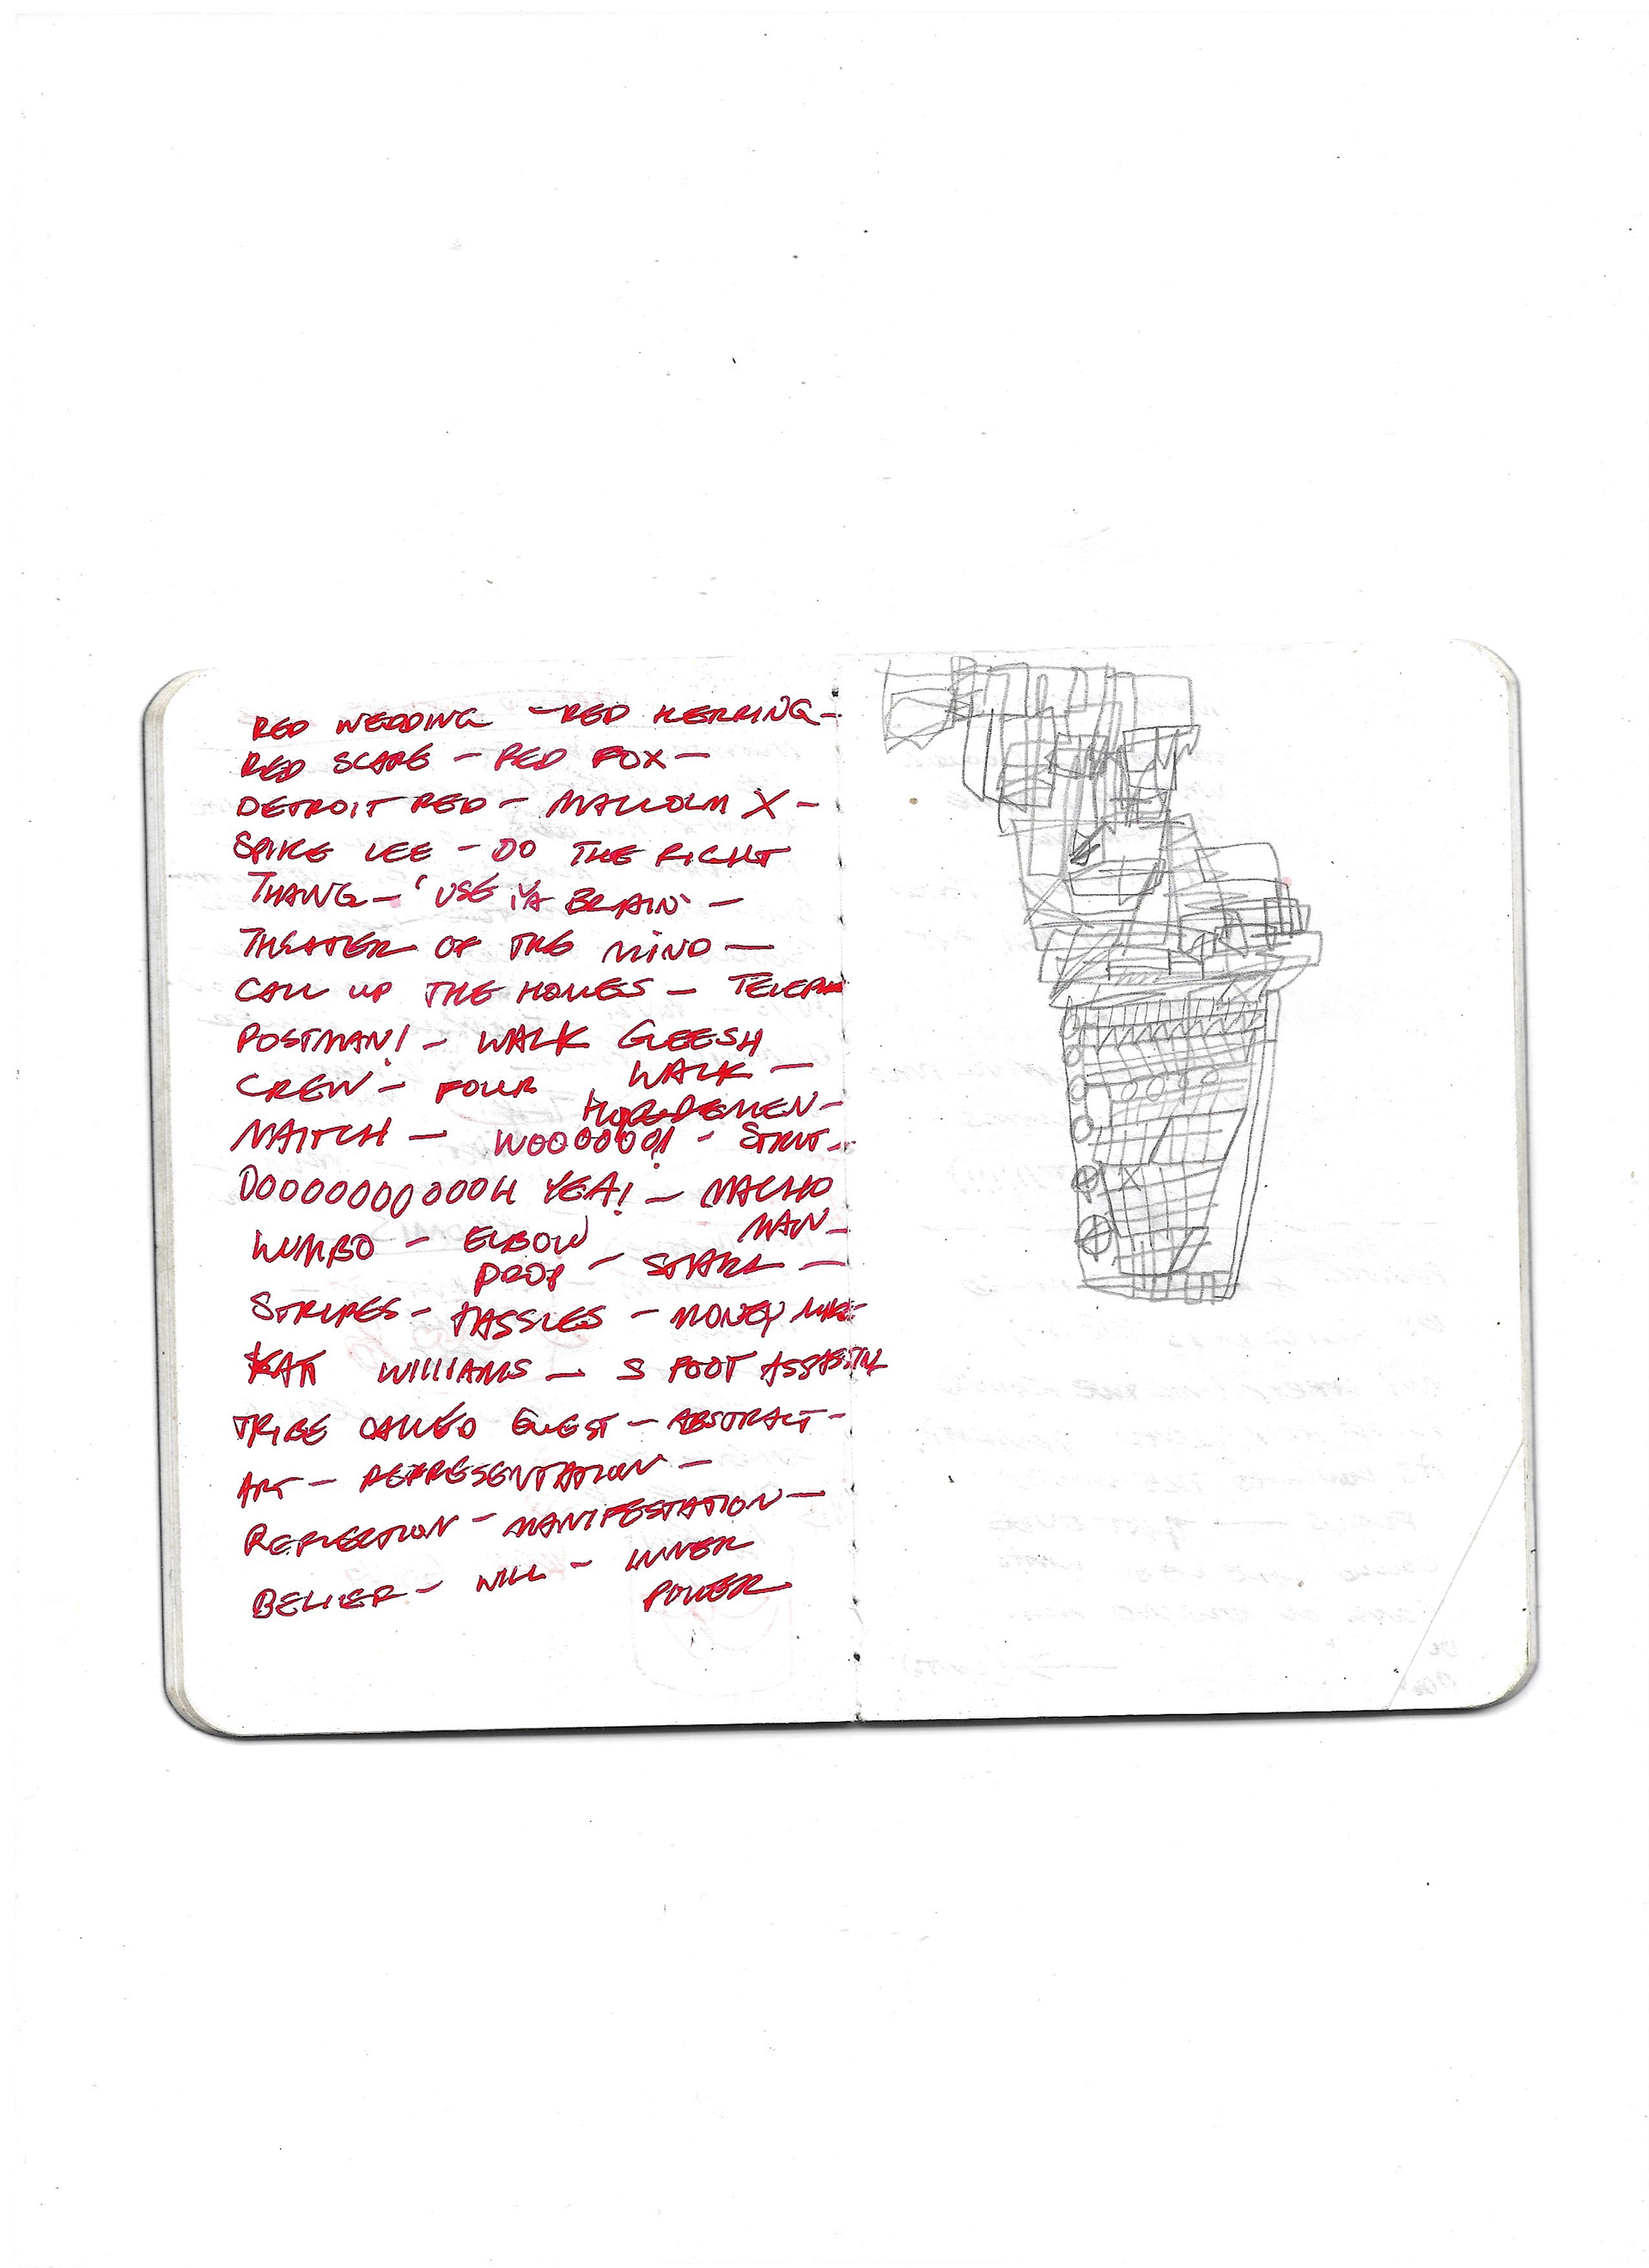 RED WEDDING - RED HERRING -
RED SCARE - RED FOX -
DETROIT RED - MALCOLM X -
SPIKE LEE - DO THE RIGHT
THANG - 'USE YA BRAIN' -
THEATER OF THE MIND -
CALL UP THE HOMES -
POSTMAN! - WALK GLEESH
WALK -
CREW - FOUR
HORSEMEN -
NAITCH - WOOOOOO! - STRUT -
OOOOOOOOOOOH YEA! - MACHO
MAN -
ELBOW
DROP -
STRIPES - TASSLES - MONEY
KAT WILLIAMS - 5 FOOT ASSASSIN
TRIBE CALLED QUEST - ABSTRACT -
ART - REPRESENTATION -
REFLECTION - MANIFESTATION -
BELIEF - WILL - INNER
POWER